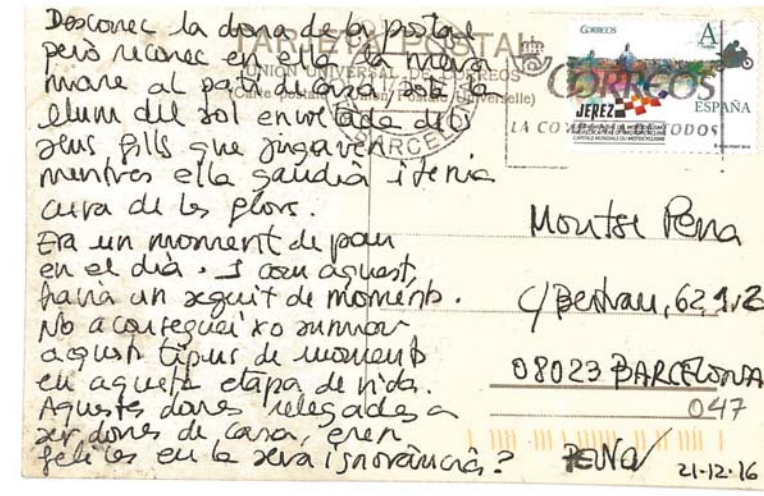 Desconec la dona de la postal
però reconec en ella la meva
mare al pati de casa, sota la
llum del sol envoltada dels
seus fills que jugaven
mentres ella gaudia i tenia
cura de les flors.
Era un moment de pau
en el dia. I com aquest,
havia un seguit de moments.
No aconsegueixo sumar
aquests tipus de moments
en aquesta etapa de vida.
Aquestes dones relegades a
ser dones de casa, eren
felices en la seva ignorància?
TARJETA POSTAL
UNION UNIVERSAL DE CORREOS
(Carte postale - Union Postale Universelle)
BARCE
CORREOS
A
CORREOS
ESPAÑA
JEREZ
CAPITALE MONDIALE DU MOTOCYCLISME
LA DE TODOS
Montse Pena
C/ Bertran, 62, 1, 2
08023 BARCELONA
047
PENA
21-12-16